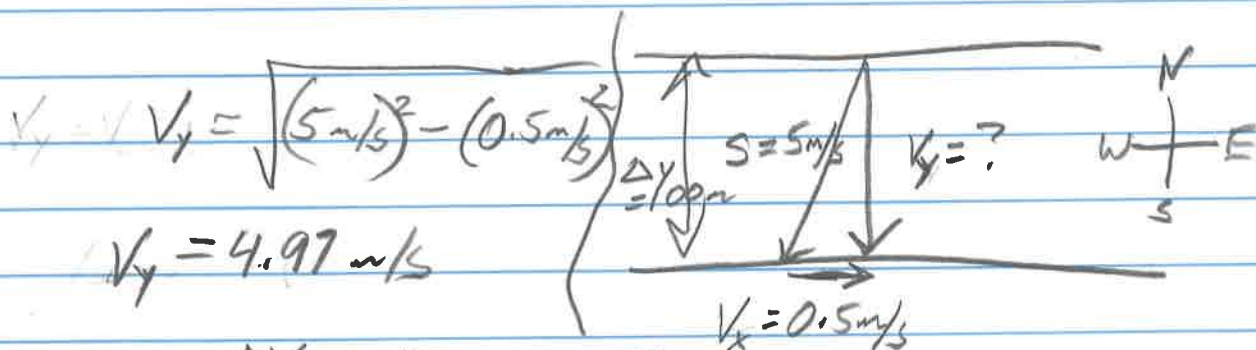 Vy = √(5m/s)² - (0.5m/s)²
Vy = 4.97 m/s
Δy
= 100m
S = 5m/s
Vy = ?
N
W E
S
Vx = 0.5m/s